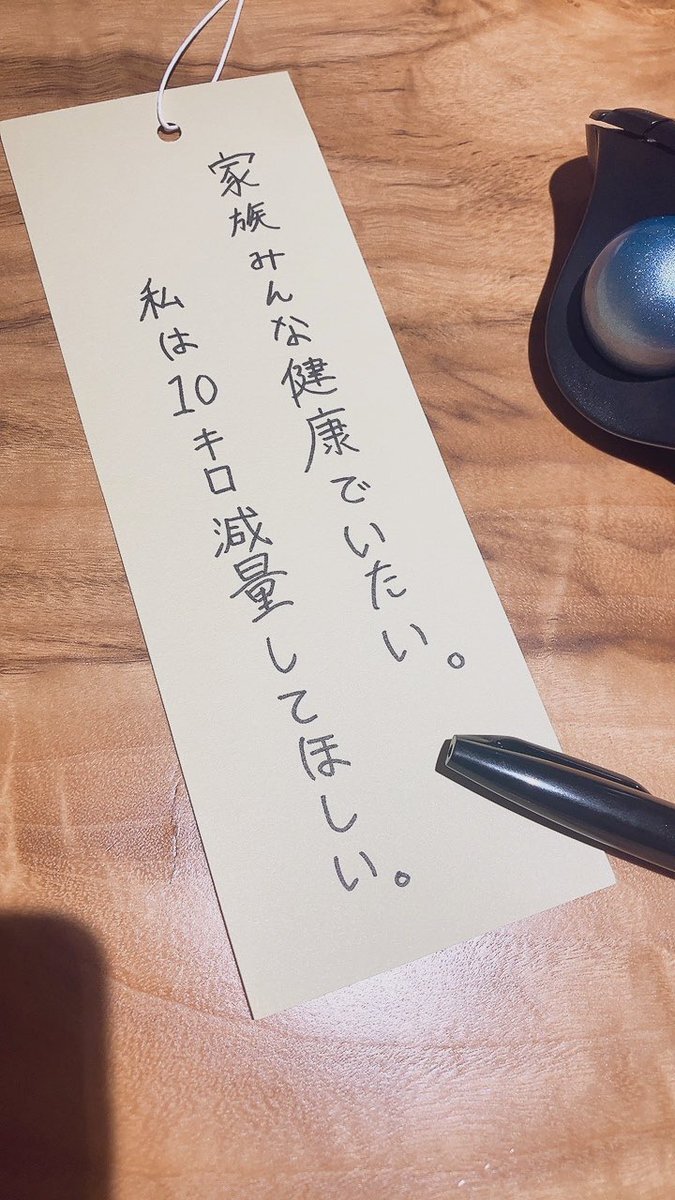 家族みんな健康でいたい。
私は10キロ減量してほしい。